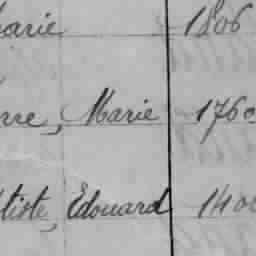 arie 1806
rre, Marie 1760
tiste, Edouard 1400